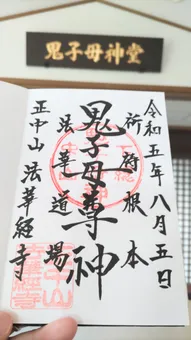 鬼子母神堂
令和五年八月五日
祈祷根本
鬼子母尊神
法華道場
正中山 法華経寺